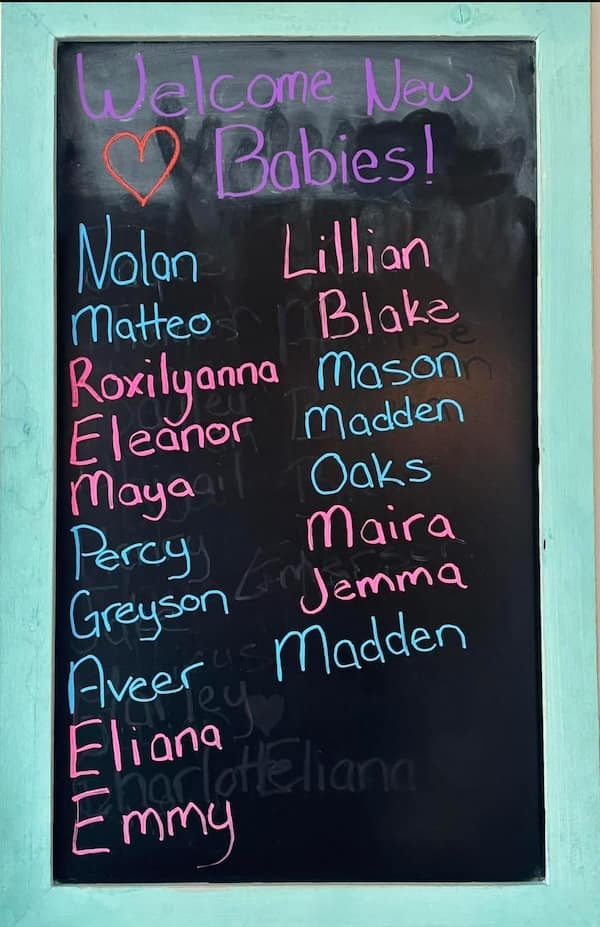 Welcome New
Babies!
Nolan
Matteo
Roxilyanna
Eleanor
Maya
Percy
Greyson
Aveer
Eliana
Emmy
Lillian
Blake
Mason
Madden
Oaks
Maira
Jemma
Madden
Eliana